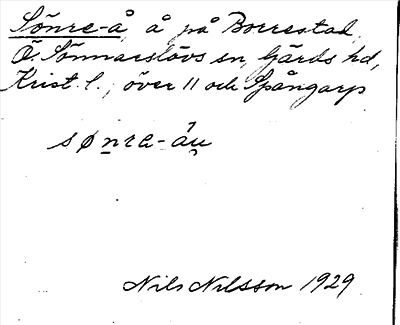 Sönre-å, å på Borrestad,
Ö. Sönnarslövs sn, Gärds hd,
Krist. l., över 11 och Spångarp
sønrɑ-åu̯
Nils Nilsson 1929